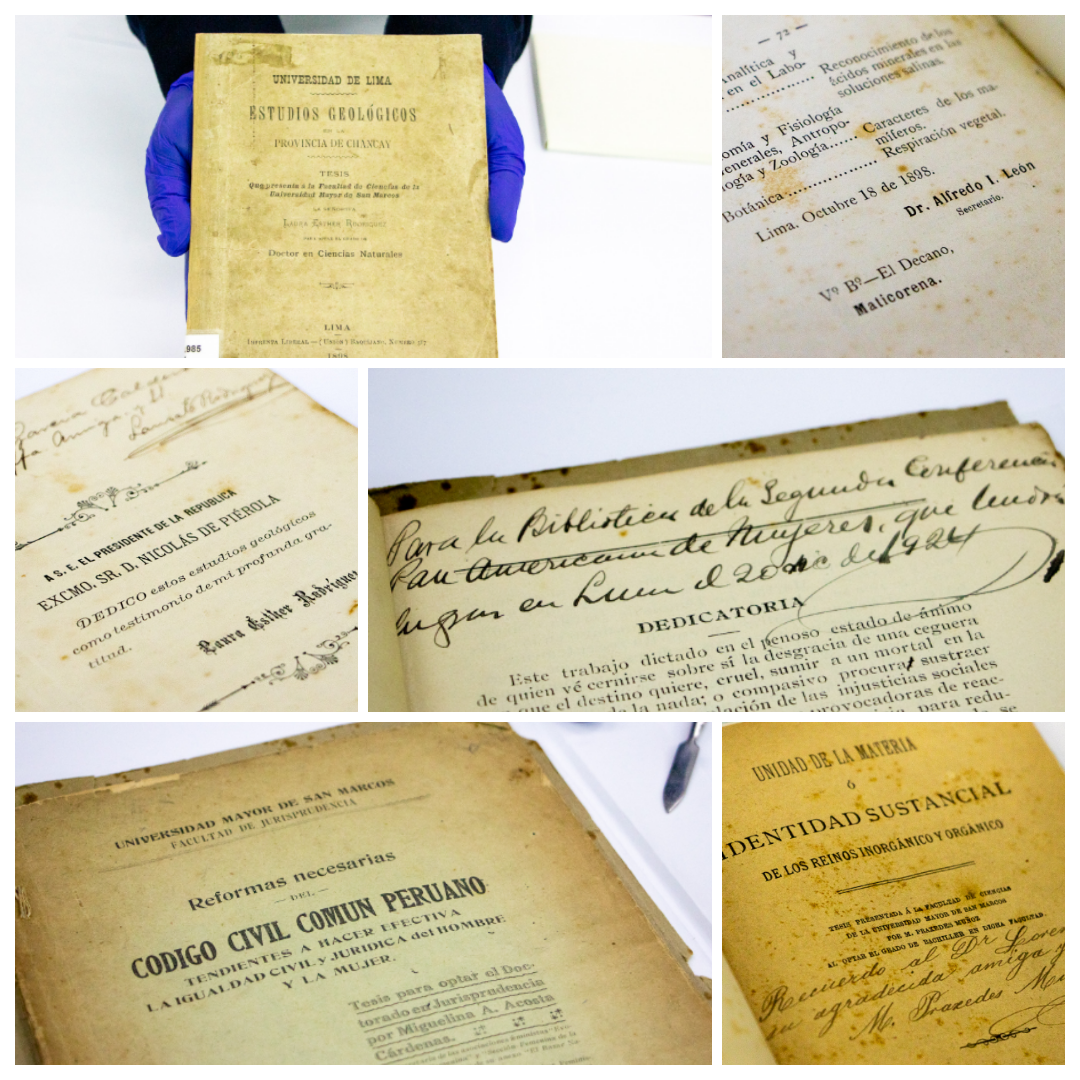 UNIVERSIDAD DE LIMA
ESTUDIOS GEOLÓGICOS
EN LA
PROVINCIA DE CHANCAY
TESIS
Que presenta à la Facultad de Ciencias de la
Universidad Mayor de San Marcos
LA SEÑORITA
LAURA ESTHER RODRIGUEZ
PARA OPTAR EL GRADO DE
Doctor en Ciencias Naturales
LIMA
IMPRENTA LIBERAL — (UNION) BAQUIJANO, NÚMERO 317
1898
985
— 72 —
Analítica y
en el Labo-
Reconocimiento de los
ácidos minerales en las
soluciones salinas.
omía y Fisiología
enerales, Antropo-
ogía y Zoología...... Caracteres de los ma-
míferos.
Botánica.................. Respiración vegetal.
Lima. Octubre 18 de 1898.
Dr. Alfredo I. León
Secretario.
Vº Bº—El Decano,
Maticorena.
García Calderón
amiga
Laura E Rodriguez
A S. E. EL PRESIDENTE DE LA REPUBLICA
EXCMO. SR. D. NICOLÁS DE PIÉROLA
DEDICO estos estudios geológicos
como testimonio de mi profunda gra-
titud.
Laura Esther Rodriguez
Para la Biblioteca de la Segunda Conferencia
Pan Americana de Mujeres, que tendrá
lugar en Lima el 20 dic de 1924
DEDICATORIA
Este trabajo dictado en el penoso estado de ánimo
de quien vé cernirse sobre sí la desgracia de una ceguera
que el destino quiere, cruel, sumir a un mortal en la
de la nada; o compasivo procura sustraer
lación de las injusticias sociales
provocadoras de reac-
para redu-
se
UNIVERSIDAD MAYOR DE SAN MARCOS
FACULTAD DE JURISPRUDENCIA
Reformas necesarias
— DEL —
CODIGO CIVIL COMUN PERUANO
TENDIENTES A HACER EFECTIVA
LA IGUALDAD CIVIL y JURIDICA del HOMBRE
Y LA MUJER.
Tesis para optar el Doc-
torado en Jurisprudencia
por Miguelina A. Acosta
Cárdenas.
UNIDAD DE LA MATERIA
ó
IDENTIDAD SUSTANCIAL
DE LOS REINOS INORGÁNICO Y ORGÁNICO
TESIS PRESENTADA Á LA FACULTAD DE CIENCIAS
DE LA UNIVERSIDAD MAYOR DE SAN MARCOS
POR M. PRAXEDES MUÑOZ
AL OPTAR EL GRADO DE BACHILLER EN DICHA FACULTAD.
Recuerdo al Dr Loren
su agradecida amiga y
M. Praxedes Mu